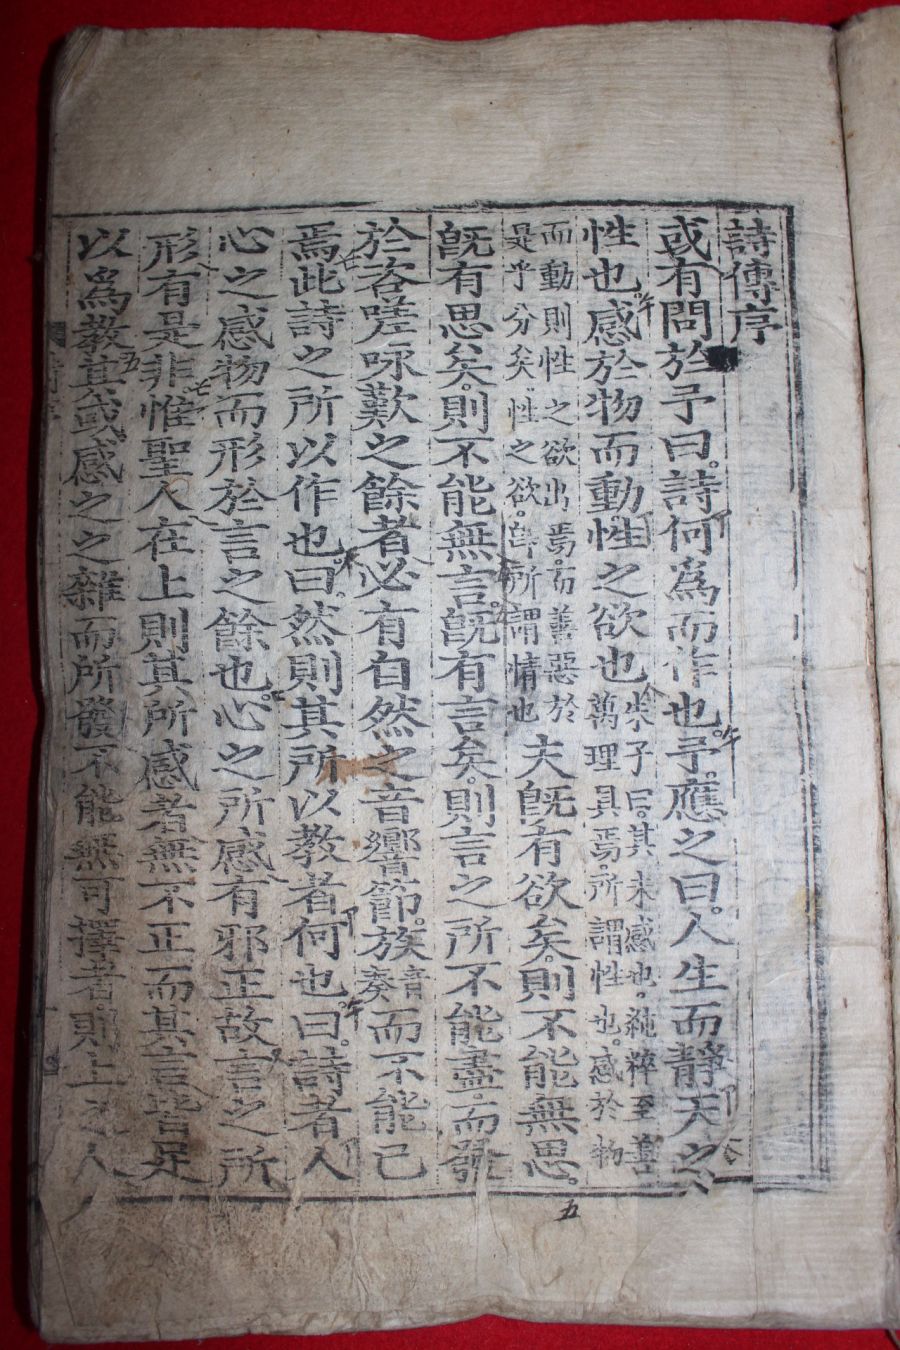 詩傳序
或有問於予曰詩何爲而作也予應之曰人生而靜天之
性也感於物而動性之欲也朱子曰其未感也純粹至善
萬理具焉所謂性也感於物
而動則性之欲出焉而善惡於
是乎分矣性之欲卽所謂情也夫旣有欲矣則不能無思
旣有思矣則不能無言旣有言矣則言之所不能盡而發
於咨嗟咏歎之餘者必有自然之音響節族音奏而不能已
焉此詩之所以作也曰然則其所以敎者何也曰詩者人
心之感物而形於言之餘也心之所感有邪正故言之所
形有是非惟聖人在上則其所感者無不正而其言皆足
以爲敎其或感之之雜而所發不能無可擇者則上之人
五